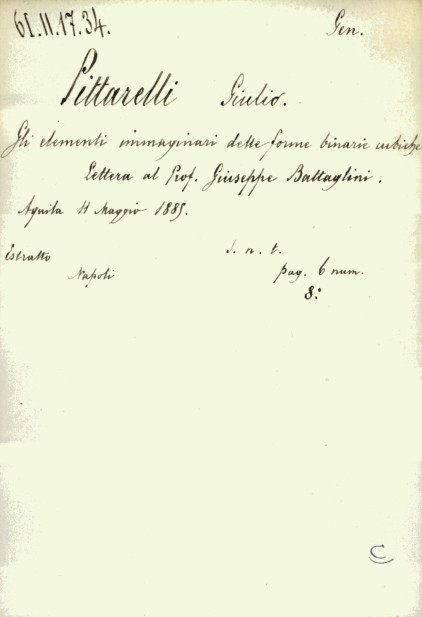 61.II.17.34. Gen.
Pittarelli Giulio.
Gli elementi immaginari delle forme binarie cubiche
Lettera al Prof. Giuseppe Battaglini.
Aquila 11 Maggio 1885.
Estratto s. n. t.
Napoli pag. 6 num.
8.°
C